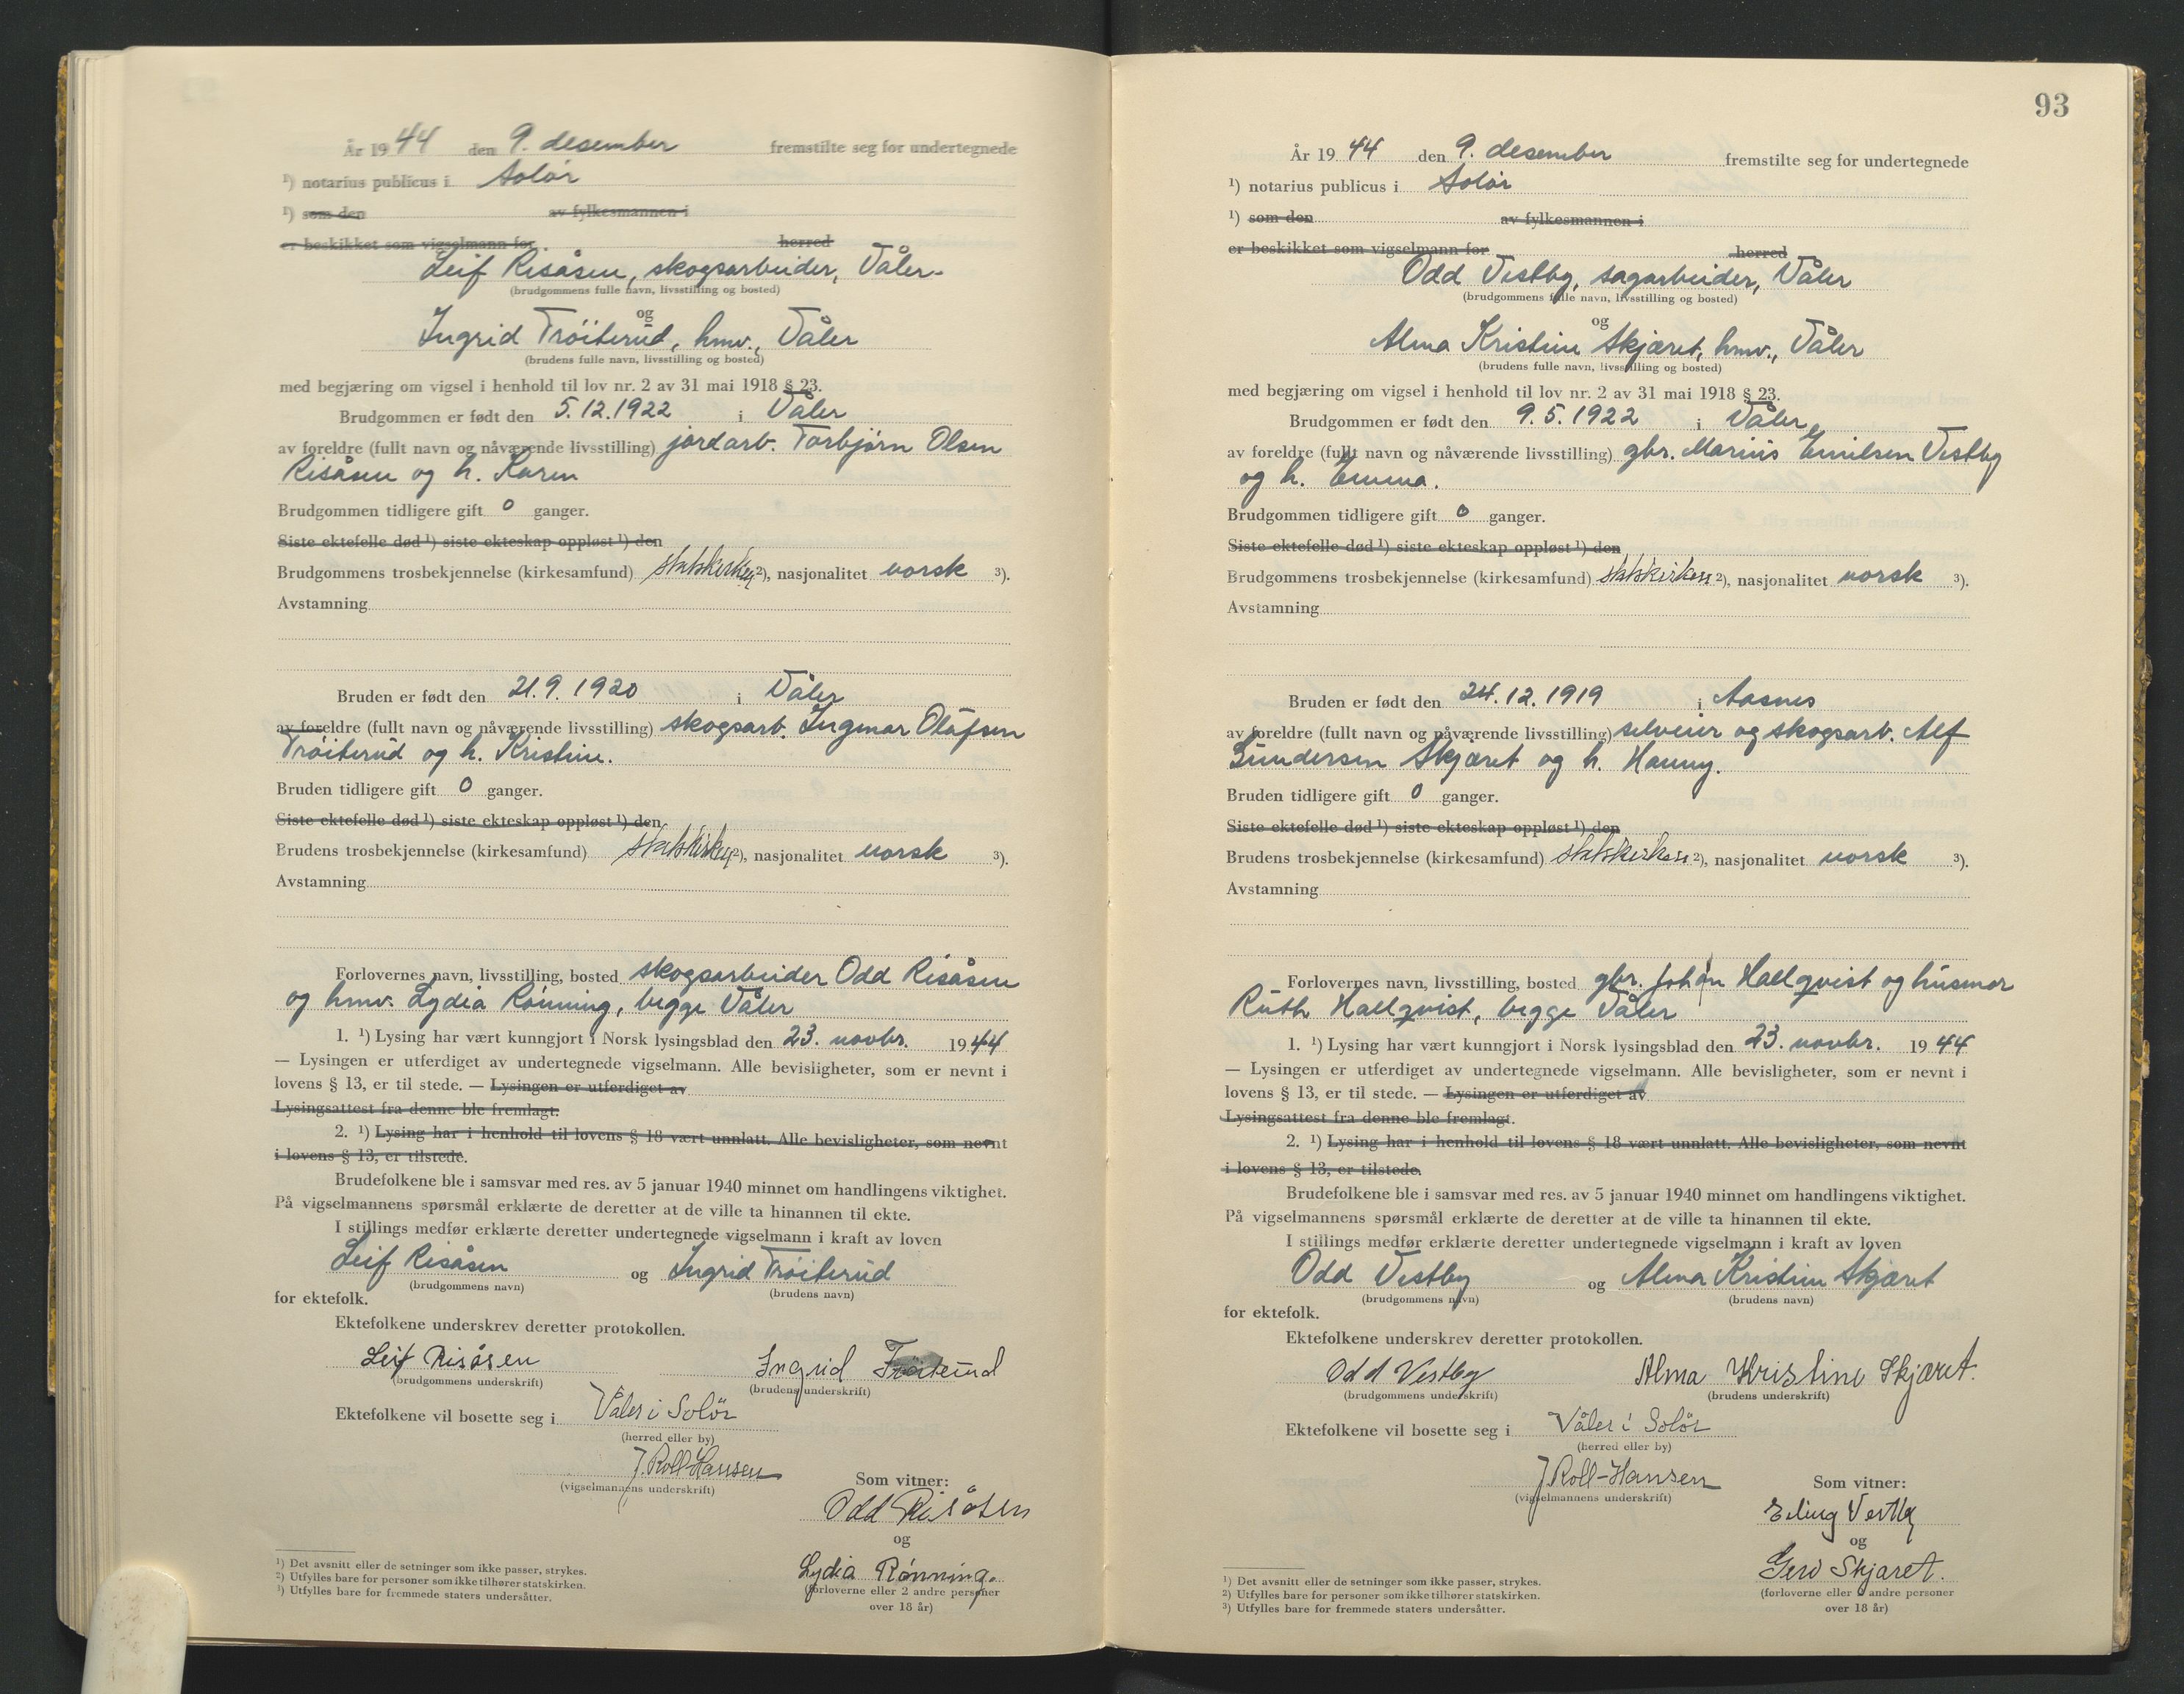 År 1944 den 9. desember fremstilte seg for undertegnede
¹) notarius publicus i Solør
¹) som den av fylkesmannen i
er beskikket som vigselmann for herred
Leif Risåsen, skogsarbeider, Våler.
(brudgommens fulle navn, livsstilling og bosted)
og
Ingrid Tröiterud, hmv., Våler
(brudens fulle navn, livsstilling og bosted)
med begjæring om vigsel i henhold til lov nr. 2 av 31 mai 1918 § 23.
Brudgommen er født den 5.12.1922 i Våler
av foreldre (fullt navn og nåværende livsstilling) jordarb. Torbjørn Olsen
Risåsen og h. Karen
Brudgommen tidligere gift 0 ganger.
Siste ektefelle død ¹) siste ekteskap oppløst ¹) den
Brudgommens trosbekjennelse (kirkesamfund) statskirken ²), nasjonalitet norsk ³).
Avstamning
Bruden er født den 21.9.1920 i Våler
av foreldre (fullt navn og nåværende livsstilling) skogsarb. Ingmar Olafsen
Tröiterud og h. Kristine.
Bruden tidligere gift 0 ganger.
Siste ektefelle død ¹) siste ekteskap oppløst ¹) den
Brudens trosbekjennelse (kirkesamfund) statskirken ²), nasjonalitet norsk ³).
Avstamning
Forlovernes navn, livsstilling, bosted skogsarbeider Odd Risåsen
og hmv. Lydia Rönning, begge Våler
1. ¹) Lysing har vært kunngjort i Norsk lysingsblad den 23. novbr. 1944
— Lysingen er utferdiget av undertegnede vigselmann. Alle bevisligheter, som er nevnt i
lovens § 13, er til stede. — Lysingen er utferdiget av
Lysingsattest fra denne ble fremlagt.
2. ¹) Lysing har i henhold til lovens § 18 vært unnlatt. Alle bevisligheter, som nevnt
i lovens § 13, er tilstede.
Brudefolkene ble i samsvar med res. av 5 januar 1940 minnet om handlingens viktighet.
På vigselmannens spørsmål erklærte de deretter at de ville ta hinannen til ekte.
I stillings medfør erklærte deretter undertegnede vigselmann i kraft av loven
Leif Risåsen og Ingrid Tröiterud
(brudgommens navn) (brudens navn)
for ektefolk.
Ektefolkene underskrev deretter protokollen.
Leif Risåsen Ingrid Tröiterud
(brudgommens underskrift) (brudens underskrift)
Ektefolkene vil bosette seg i Våler i Solör
(herred eller by)
J. Roll-Hansen
(vigselmannens underskrift)
Som vitner:
Odd Risåsen
og
Lydia Rønning.
(forloverne eller 2 andre personer
over 18 år)
¹) Det avsnitt eller de setninger som ikke passer, strykes.
²) Utfylles bare for personer som ikke tilhører statskirken.
³) Utfylles bare for fremmede staters undersåtter.
93
År 1944 den 9. desember fremstilte seg for undertegnede
¹) notarius publicus i Solør
¹) som den av fylkesmannen i
er beskikket som vigselmann for herred
Odd Vestby, sagarbeider, Våler
(brudgommens fulle navn, livsstilling og bosted)
og
Alma Kristine Skjæret, hmv., Våler
(brudens fulle navn, livsstilling og bosted)
med begjæring om vigsel i henhold til lov nr. 2 av 31 mai 1918 § 23.
Brudgommen er født den 9.5.1922 i Våler
av foreldre (fullt navn og nåværende livsstilling) gbr. Marius Emilsen Vestby
og h. Emma.
Brudgommen tidligere gift 0 ganger.
Siste ektefelle død ¹) siste ekteskap oppløst ¹) den
Brudgommens trosbekjennelse (kirkesamfund) statskirken ²), nasjonalitet norsk ³).
Avstamning
Bruden er født den 24.12.1919 i Aasnes
av foreldre (fullt navn og nåværende livsstilling) selveier og skogsarb. Alf
Gundersen Skjæret og h. Hanny.
Bruden tidligere gift 0 ganger.
Siste ektefelle død ¹) siste ekteskap oppløst ¹) den
Brudens trosbekjennelse (kirkesamfund) statskirken ²), nasjonalitet norsk ³).
Avstamning
Forlovernes navn, livsstilling, bosted gbr. Johan Hallqvist og husmor
Ruth Hallqvist, begge Våler
1. ¹) Lysing har vært kunngjort i Norsk lysingsblad den 23. novbr. 1944
— Lysingen er utferdiget av undertegnede vigselmann. Alle bevisligheter, som er nevnt i
lovens § 13, er til stede. — Lysingen er utferdiget av
Lysingsattest fra denne ble fremlagt.
2. ¹) Lysing har i henhold til lovens § 18 vært unnlatt. Alle bevisligheter, som nevnt
i lovens § 13, er tilstede.
Brudefolkene ble i samsvar med res. av 5 januar 1940 minnet om handlingens viktighet.
På vigselmannens spørsmål erklærte de deretter at de ville ta hinannen til ekte.
I stillings medfør erklærte deretter undertegnede vigselmann i kraft av loven
Odd Vestby og Alma Kristine Skjæret
(brudgommens navn) (brudens navn)
for ektefolk.
Ektefolkene underskrev deretter protokollen.
Odd Vestby Alma Kristine Skjæret.
(brudgommens underskrift) (brudens underskrift)
Ektefolkene vil bosette seg i Våler i Solör
(herred eller by)
J. Roll-Hansen
(vigselmannens underskrift)
Som vitner:
Erling Vestby
og
Gerd Skjæret.
(forloverne eller 2 andre personer
over 18 år)
¹) Det avsnitt eller de setninger som ikke passer, strykes.
²) Utfylles bare for personer som ikke tilhører statskirken.
³) Utfylles bare for fremmede staters undersåtter.